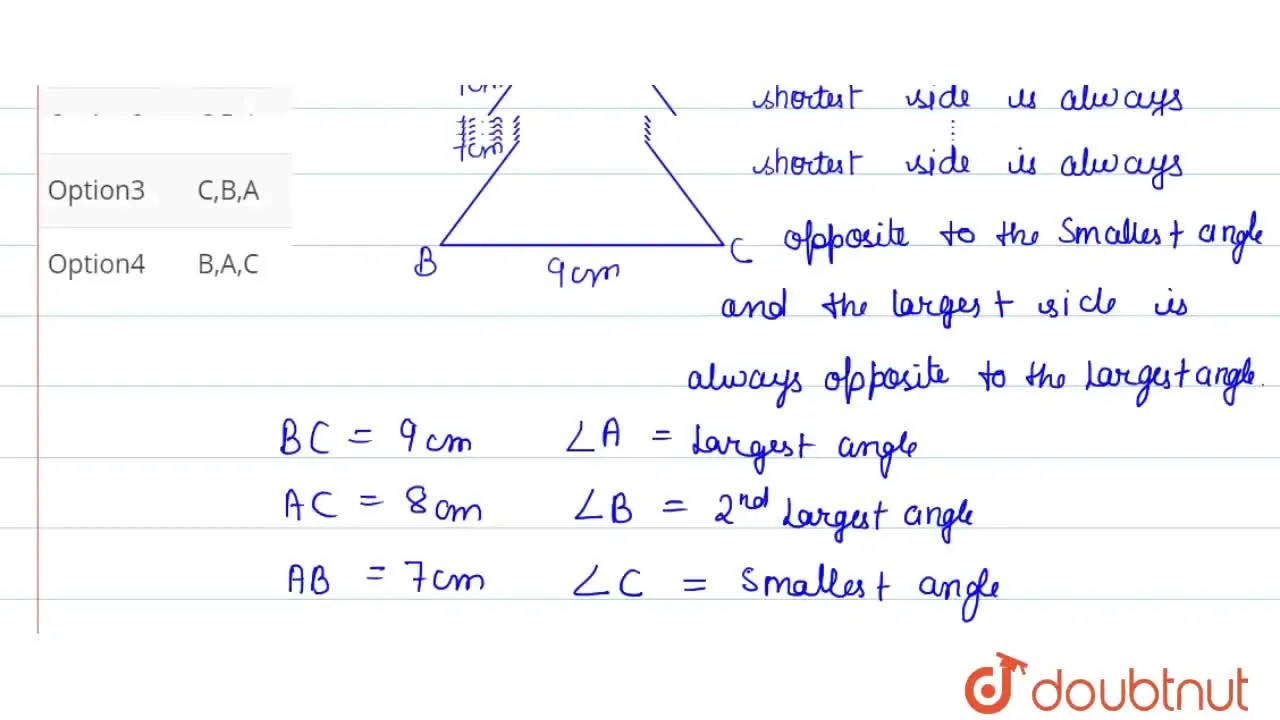 shortest side is always
7cm
shortest side is always
Option3 C,B,A
opposite to the smallest angle
Option4 B,A,C
B
C
9cm
and the largest side is
always opposite to the largest angle.
BC = 9cm ∠A = Largest angle
AC = 8cm ∠B = 2nd Largest angle
AB = 7cm ∠C = Smallest angle
doubtnut